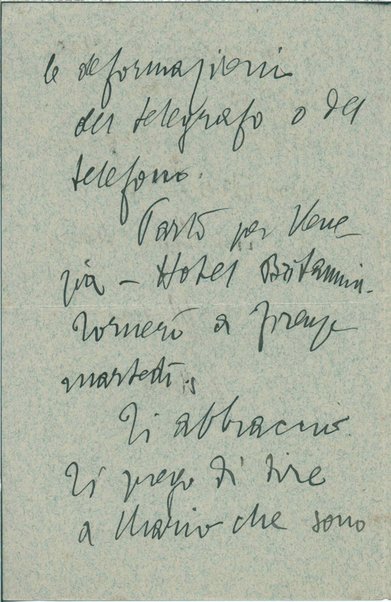 le deformazioni
del telegrafo o del
telefono.
Parto per Vene-
zia – Hotel Britannia.
Tornerò a Firenze
martedì.
Ti abbraccio.
Ti prego di dire
a Mario che sono